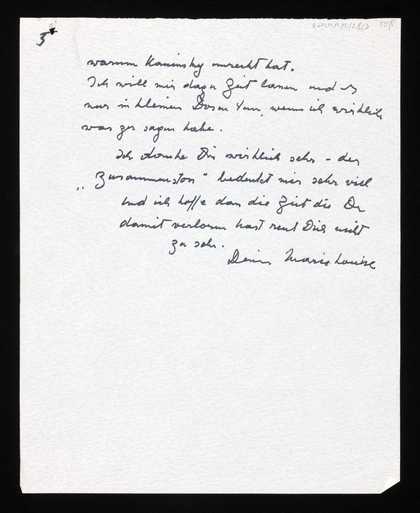 3
warum Kaminsky unrecht hat.
Ich will mir dazu Zeit lassen und es
nur in kleinen Dosen tun, wenn ich wirklich
was zu sagen habe.
Ich danke Dir wirklich sehr – der
„Zusammenstoss" bedeutet mir sehr viel
und ich hoffe dass die Zeit die Du
damit verloren hast reut Dich nicht
zu sehr.
Deine Marie Louise